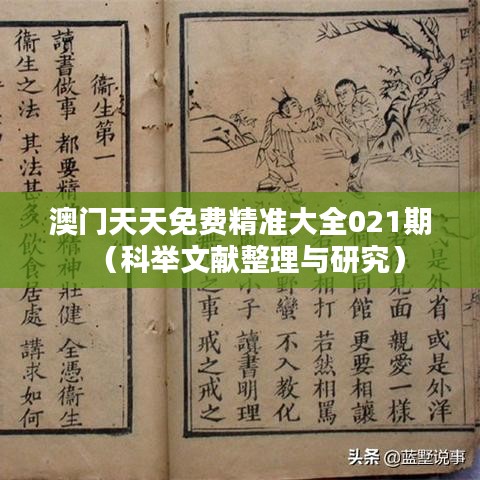 澳门天天免费精准大全021期
（科举文献整理与研究）
是外省 或是外洋
見面 親愛一樣
同館 更要相讓
相打 若然相罵
野蠻 不入教化
小子 讀書明理
之 戒之戒之
衞生第一
讀書做事 都要精 神壯健 全憑衞生
衞生之法 其法甚多 飲食居處 講求如何
头条 @蓝墅说事